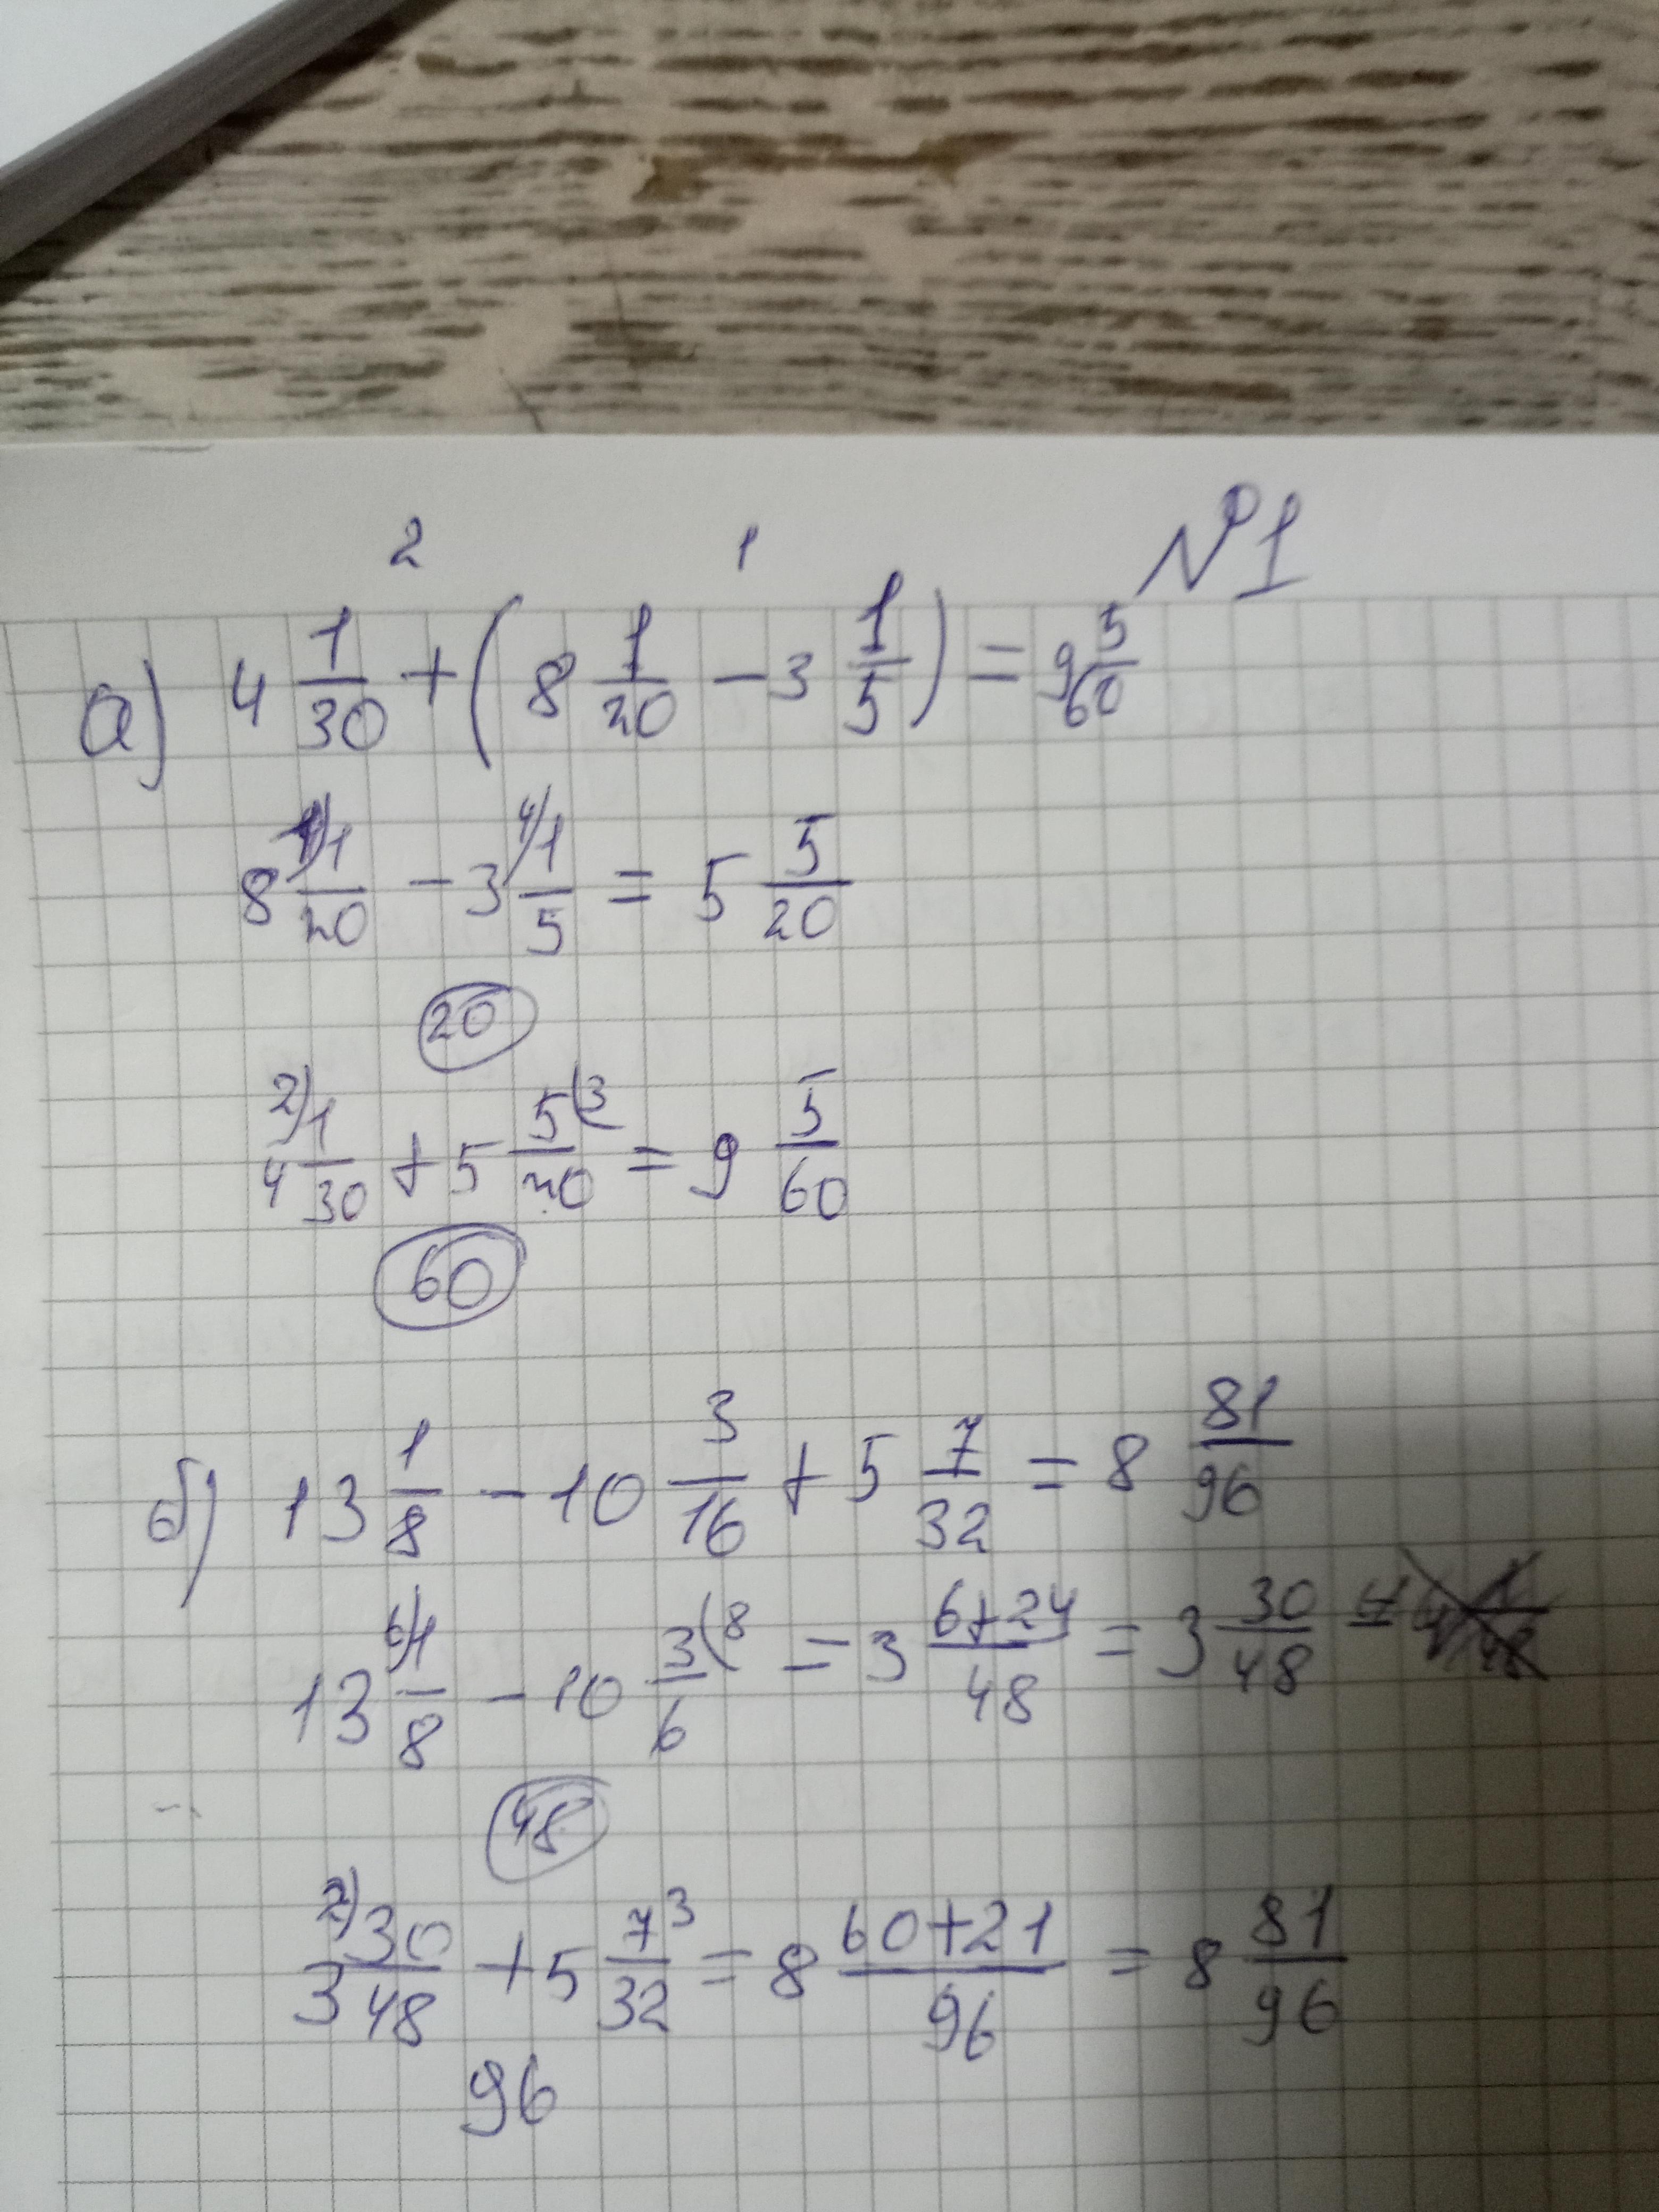 №1
2 1
а) 4 1/30 + (8 1/20 - 3 1/5) = 9 5/60
8 1/20 - 3 4)1/5 = 5 5/20
20
4 2)1/30 + 5 5(3/20 = 9 5/60
60
б) 13 1/8 - 10 3/16 + 5 7/32 = 8 81/96
13 6)1/8 - 10 3(8/6 = 3 6+24/48 = 3 30/48
48
3 2)30/48 + 5 7 3/32 = 8 60+21/96 = 8 81/96
96